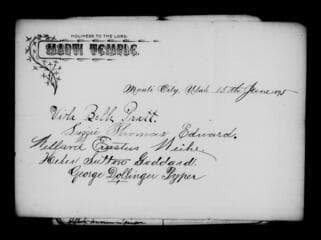 HOLINESS TO THE LORD.
MANTI TEMPLE.
Manti City, Utah 15th June 1895
Viola Belle Pratt.
Lizzie Thomas Edward.
Willard Erastus Weihe
Heber Sutton Goddard.
George Dollinger Pyper